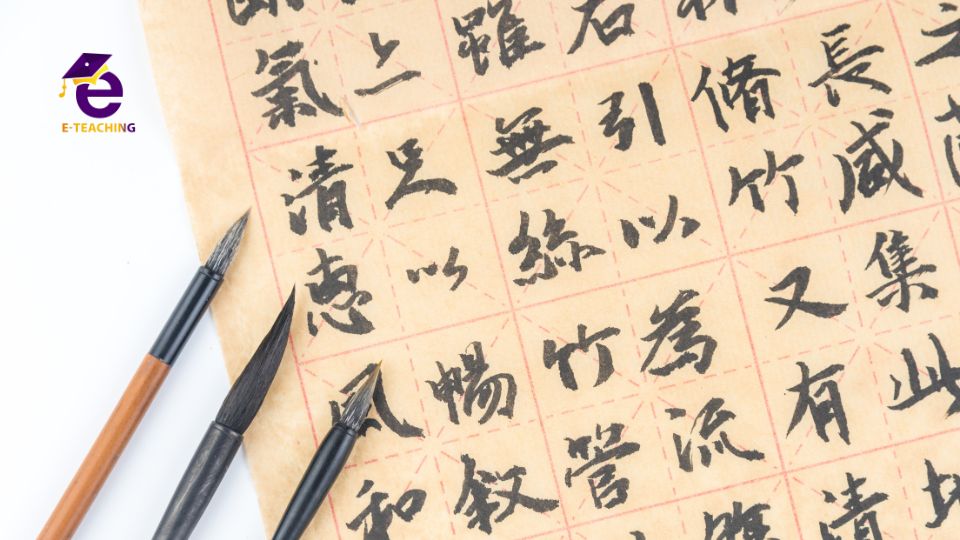 長咸集此
脩竹又有清
右引以為流觴
雖無絲竹管
足以暢敘
氣清惠風和
E-TEACHING